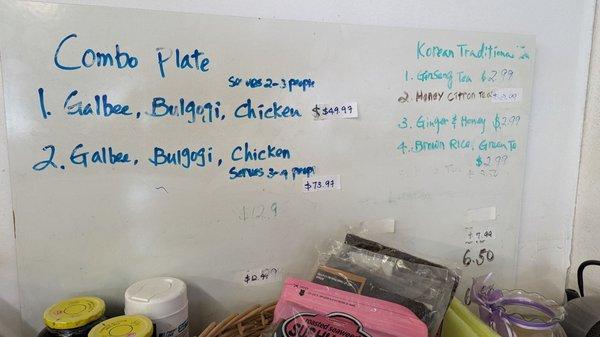 Combo Plate
Serves 2-3 people
1. Galbee, Bulgogi, Chicken $ $49.97
2. Galbee, Bulgogi, Chicken
Serves 3-4 peopl
$73.97
$12.9
$12.99
Korean Traditional Tea
1. Ginseng Tea $2.99
2. Honey Citron Tea
3. Ginger & Honey $2.99
4. Brown Rice, Green Te
$2.99
$7.99
6.50
roasted seaweed
SUSHI